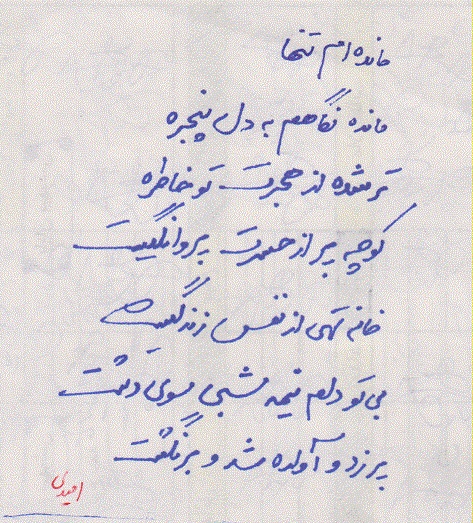 مانده ام تنها
مانده نگاهم به دل پنجره
تر شده از هجرت تو خاطره
کوچه پر از حسرت پروانگیست
خانه تهی از نفس زندگیست
بی تو دلم نیمه شبی سوی دشت
پر زد و آواده شد و برنگشت
امیدی